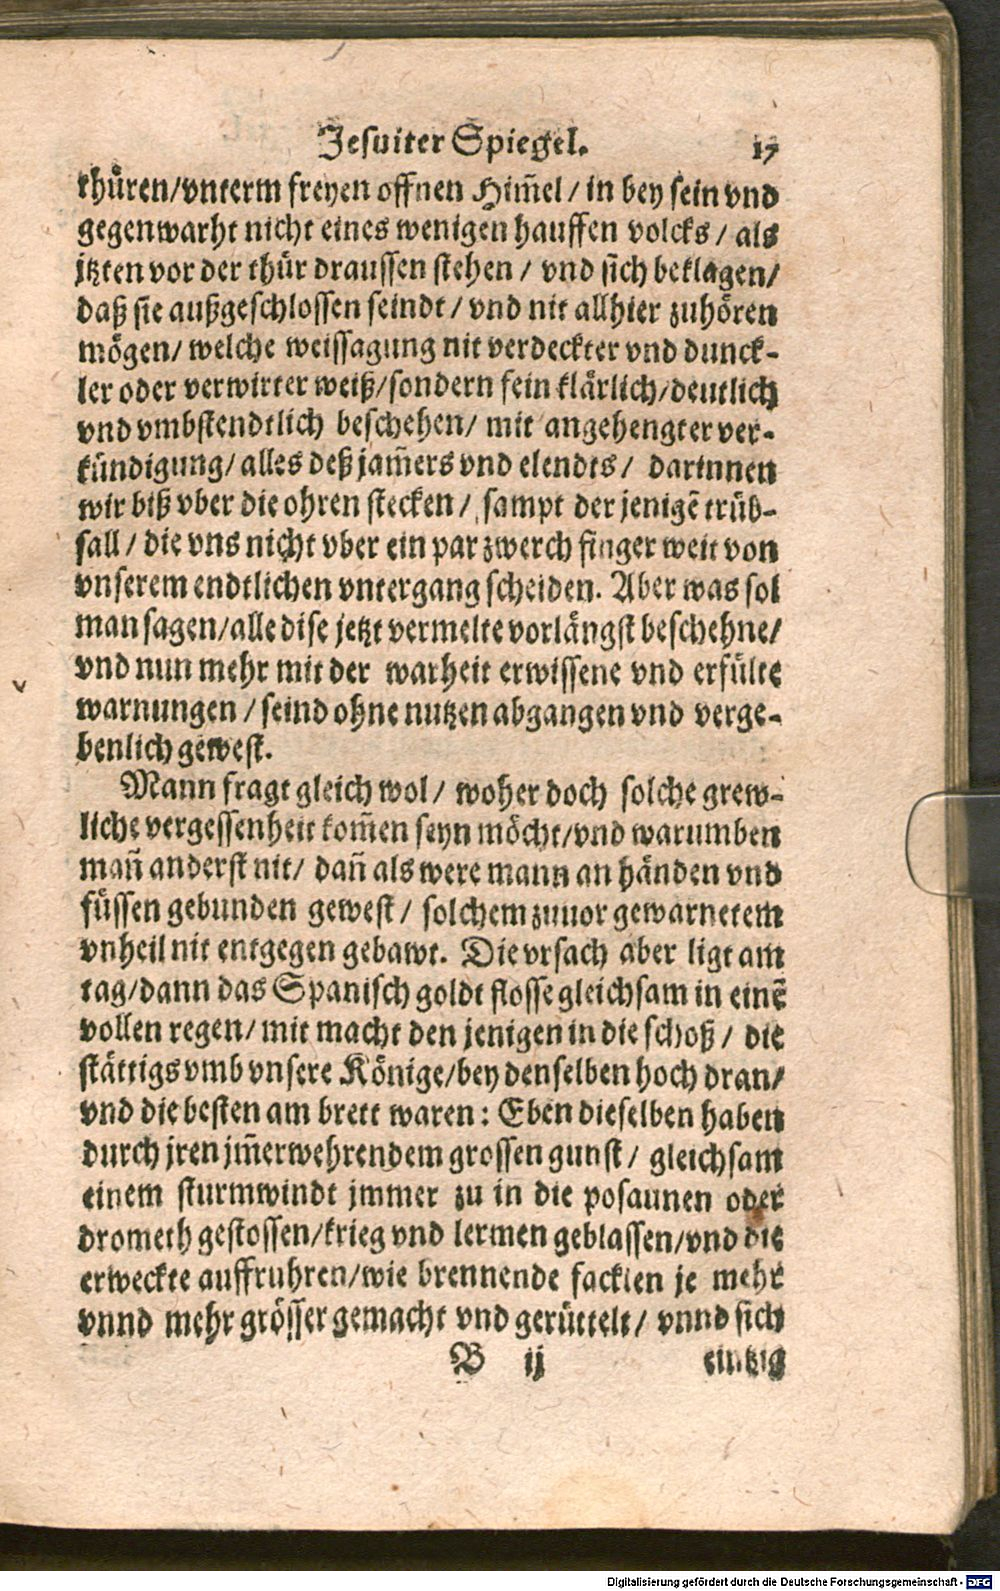 Jesuiter Spiegel. 17
thüren/vnterm freyen offnen Him̃el/ in bey sein vnd
gegenwarht nicht eines wenigen hauffen volcks/ als
jtzten vor der thür draussen stehen/ vnd sich beklagen/
daß sie außgeschlossen seindt/ vnd nit allhier zuhören
mögen/ welche weissagung nit verdeckter vnd dunck-
ler oder verwirter weiß/sondern fein klärlich/deutlich
vnd vmbstendtlich beschehen/ mit angehengter ver-
kündigung/ alles deß jam̃ers vnd elendts/ darinnen
wir biß vber die ohren stecken/ sampt der jenigẽ trüb-
sall/ die vns nicht vber ein par zwerch finger weit von
vnserem endtlichen vntergang scheiden. Aber was sol
man sagen/alle dise jetzt vermelte vorlängst beschehne/
vnd nun mehr mit der warheit erwissene vnd erfülte
warnungen/ seind ohne nutzen abgangen vnd verge-
benlich gewest.
Mann fragt gleich wol/ woher doch solche grew-
liche vergessenheit kom̃en seyn möcht/vnd warumben
mañ anderst nit/ dañ als were mann an händen vnd
füssen gebunden gewest/ solchem zuuor gewarnetem
vnheil nit entgegen gebawt. Die vrsach aber ligt am
tag/dann das Spanisch goldt flosse gleichsam in einẽ
vollen regen/ mit macht den jenigen in die schoß/ die
stättigs vmb vnsere Könige/bey denselben hoch dran/
vnd die besten am brett waren: Eben dieselben haben
durch jren jm̃erwehrendem grossen gunst/ gleichsam
einem sturmwindt jmmer zu in die posaunen oder
drometh gestossen/krieg vnd lermen geblassen/vnd die
erweckte auffruhren/wie brennende facklen je mehr
vnnd mehr grösser gemacht vnd gerüttelt/ vnnd sich
B ij eintzig
Digitalisierung gefördert durch die Deutsche Forschungsgemeinschaft - DFG